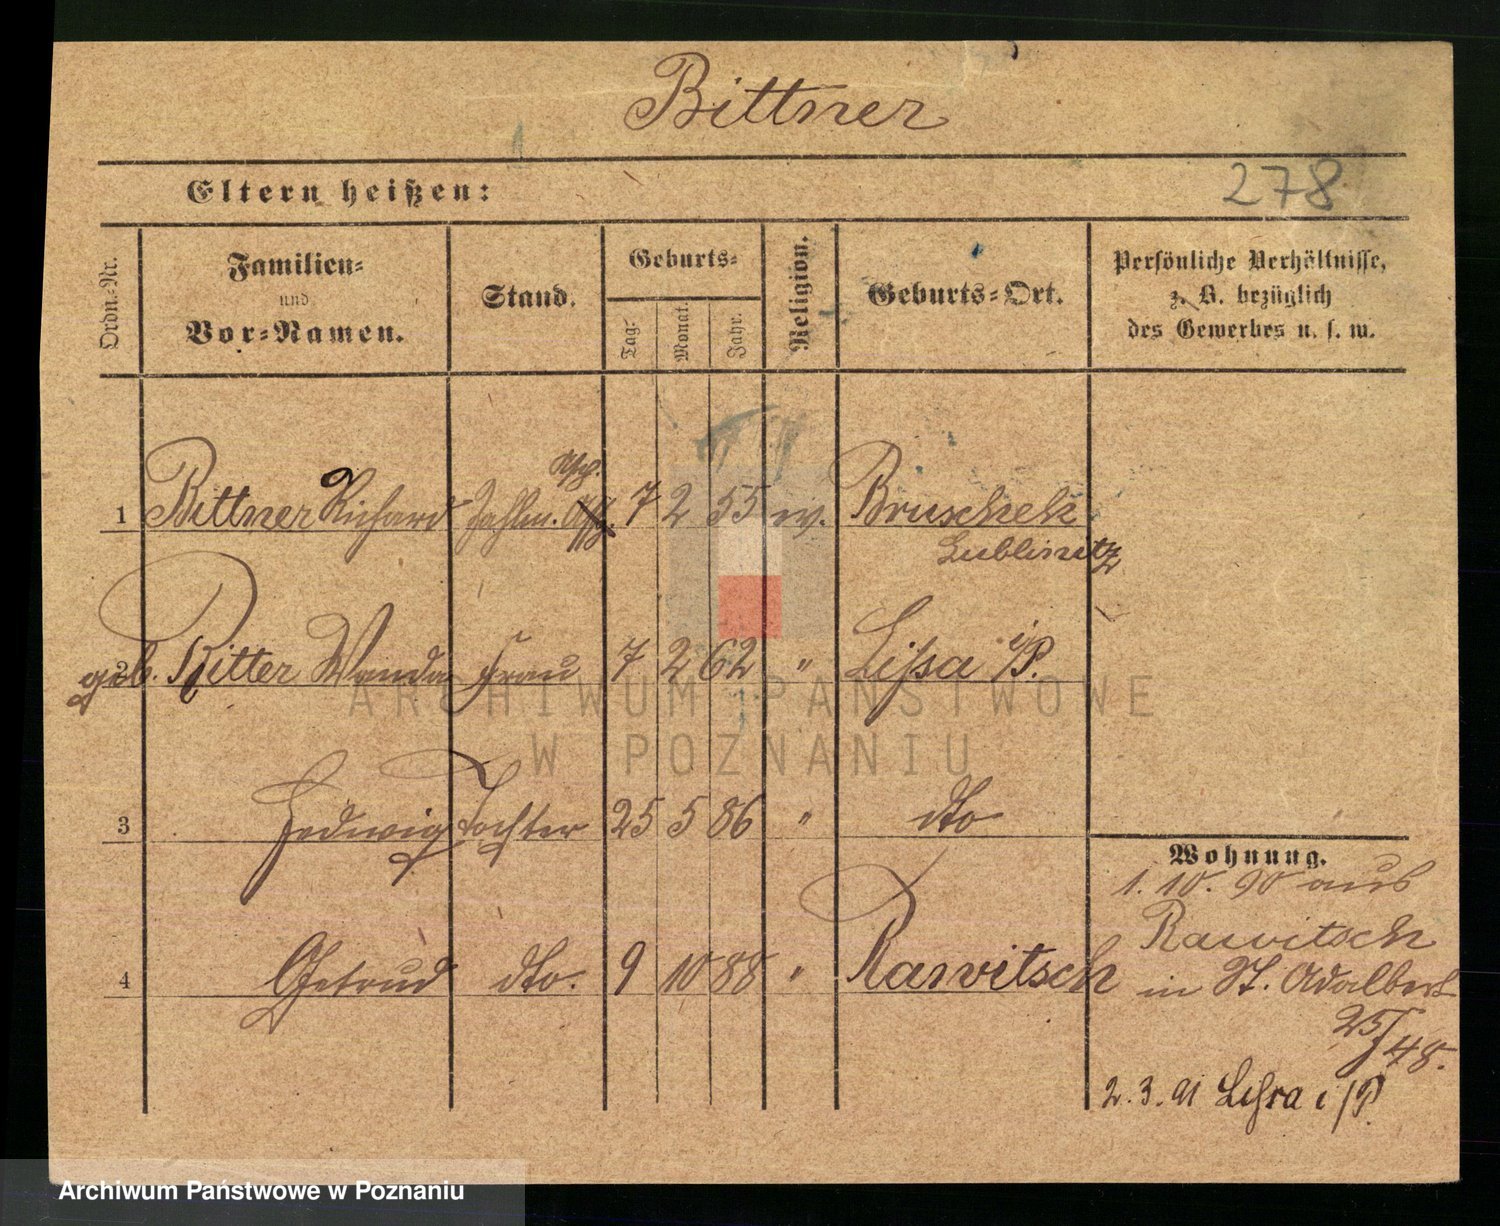 Bittner
278
Eltern heißen:
Ordn.-Nr.
Familien-
und
Vor-Namen.
Stand.
Geburts-
Tag:
Monat.
Jahr.
Religion.
Geburts-Ort.
Persönliche Verhältnisse,
z. B. bezüglich
des Gewerbes u. s. w.
1 Bittner Richard Zahlm. Asp. 7 2 55 ev. Bruschek
Lublinitz
2 geb. Ritter Wanda Frau 7 2 62 " Lissa i/P.
3 Hedwig Tochter 25 5 86 " dto
4 Getrud dto. 9 10 88 " Rawitsch
Wohnung.
1. 10. 90 aus
Rawitsch
in St. Adalbert
25/48.
2. 3. 91 Lissa i/P
ARCHIWUM PAŃSTWOWE
W POZNANIU
Archiwum Państwowe w Poznaniu